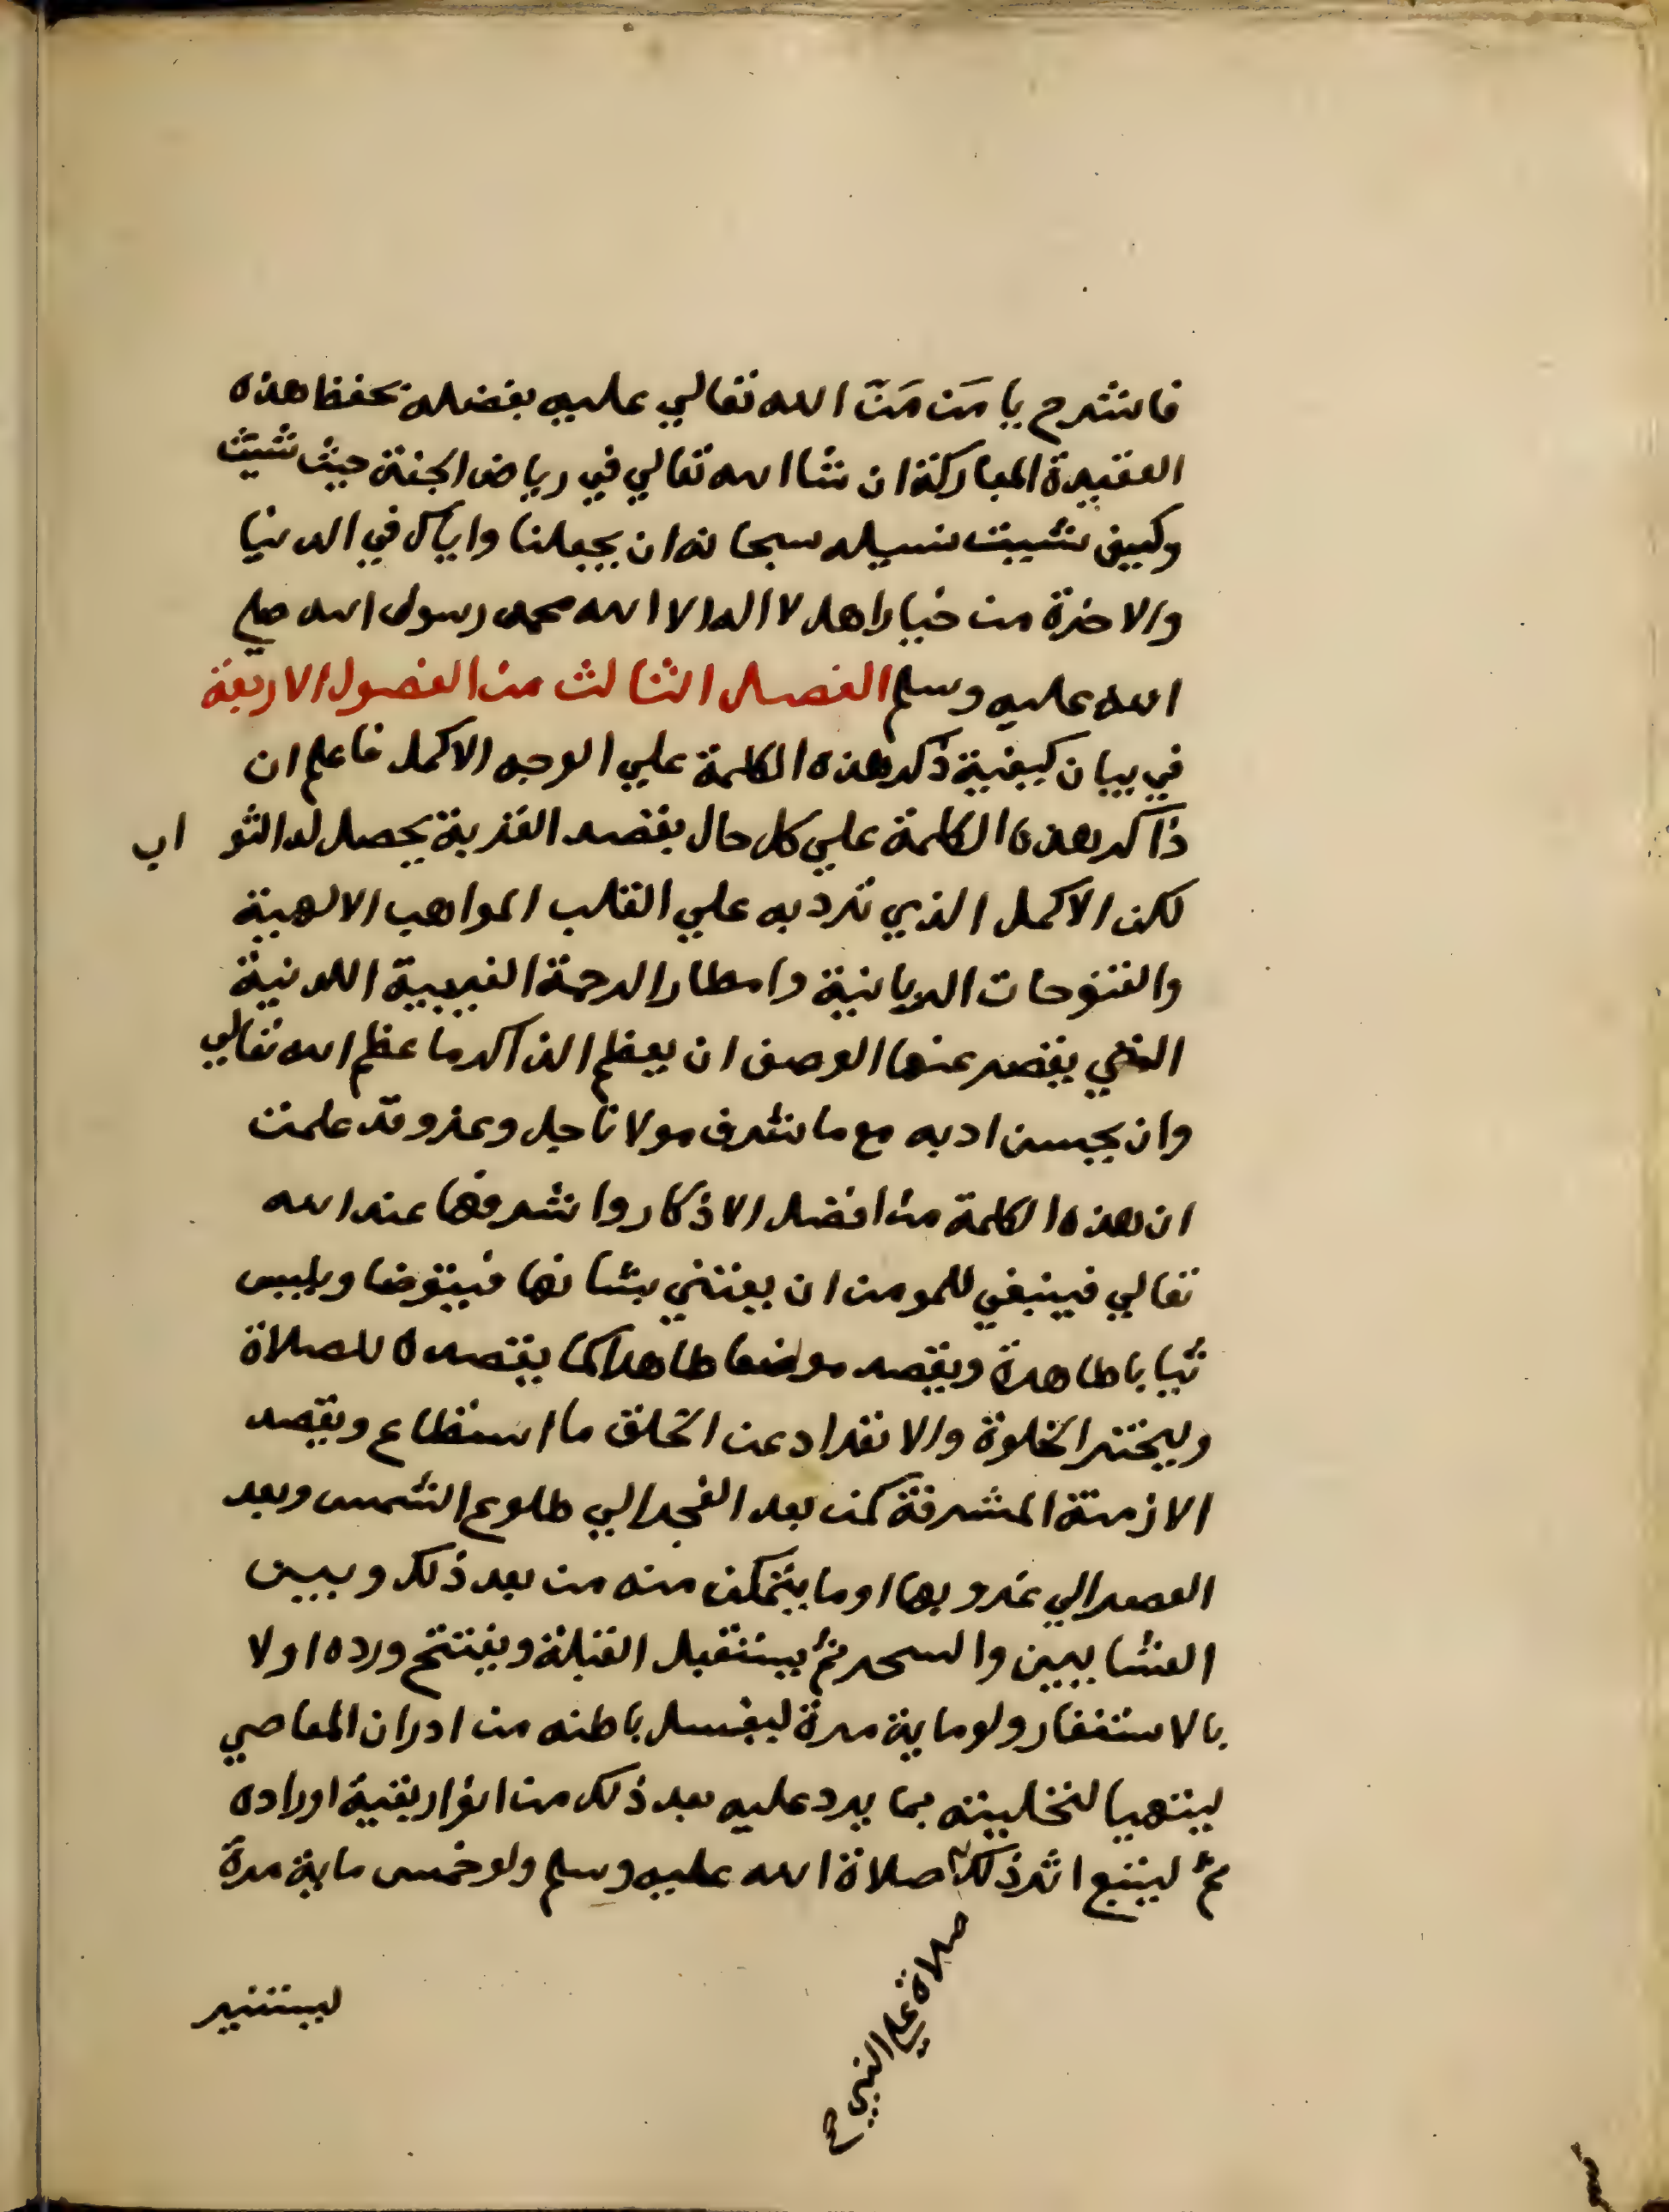 فاسرح يا مَن مَنَّ الله تعالي عليه بفضله بحفظ هذه
العقيدة المباركة ان شا الله تعالي في رياض الجنة حيث شيت
وكيف شيت نسيله سبحانه ان يجعلنا واياك في الدنيا
والاخرة من خيار اهل لا اله الا الله محمد رسول الله صلي
الله عليه وسلم الفصل الثالث من الفصول الاربعة
في بيان كيفية ذكر هذه الكلمة علي الوجه الاكمل فاعلم ان
ذاكر هذه الكلمة علي كل حال بقصد القربة يحصل له الثواب
لكن الاكمل الذي ترد به علي القلب المواهب الالهية
والفتوحات الربانية وامطار الرحمة الغيبية اللدنية
التي يقصر عنها الوصف ان يعظم الذاكر ما عظم الله تعالي
وان يحسن ادبه مع ما شرف مولانا جل وعز وقد علمت
ان هذه الكلمة من افضل الاذكار واشرفها عند الله
تعالي فينبغي للمومن ان يعتني بشانها فيتوضا ويلبس
ثيابا طاهرة ويقصد موضعا طاهرا كما يقصده للصلاة
وليختر الخلوة والانفراد عن الخلق ما استطاع ويقصد
الازمنة المشرفة كمن بعد الفجر الي طلوع الشمس وبعد
العصر الي غروبها او ما يتمكن منه من بعد ذلك وبين
العشايين والسحر ثم يستقبل القبلة ويفتتح ورده اولا
بالاستغفار ولو ماية مرة ليغسل باطنه من ادران المعاصي
ليتهيا لتحليته بما يرد عليه بعد ذلك من انوار بقية اوراده
ثم ليتبع اثر ذلك صلاة الله عليه وسلم ولو خمس ماية مرة
صلاة علي النبي صح
ليستنير